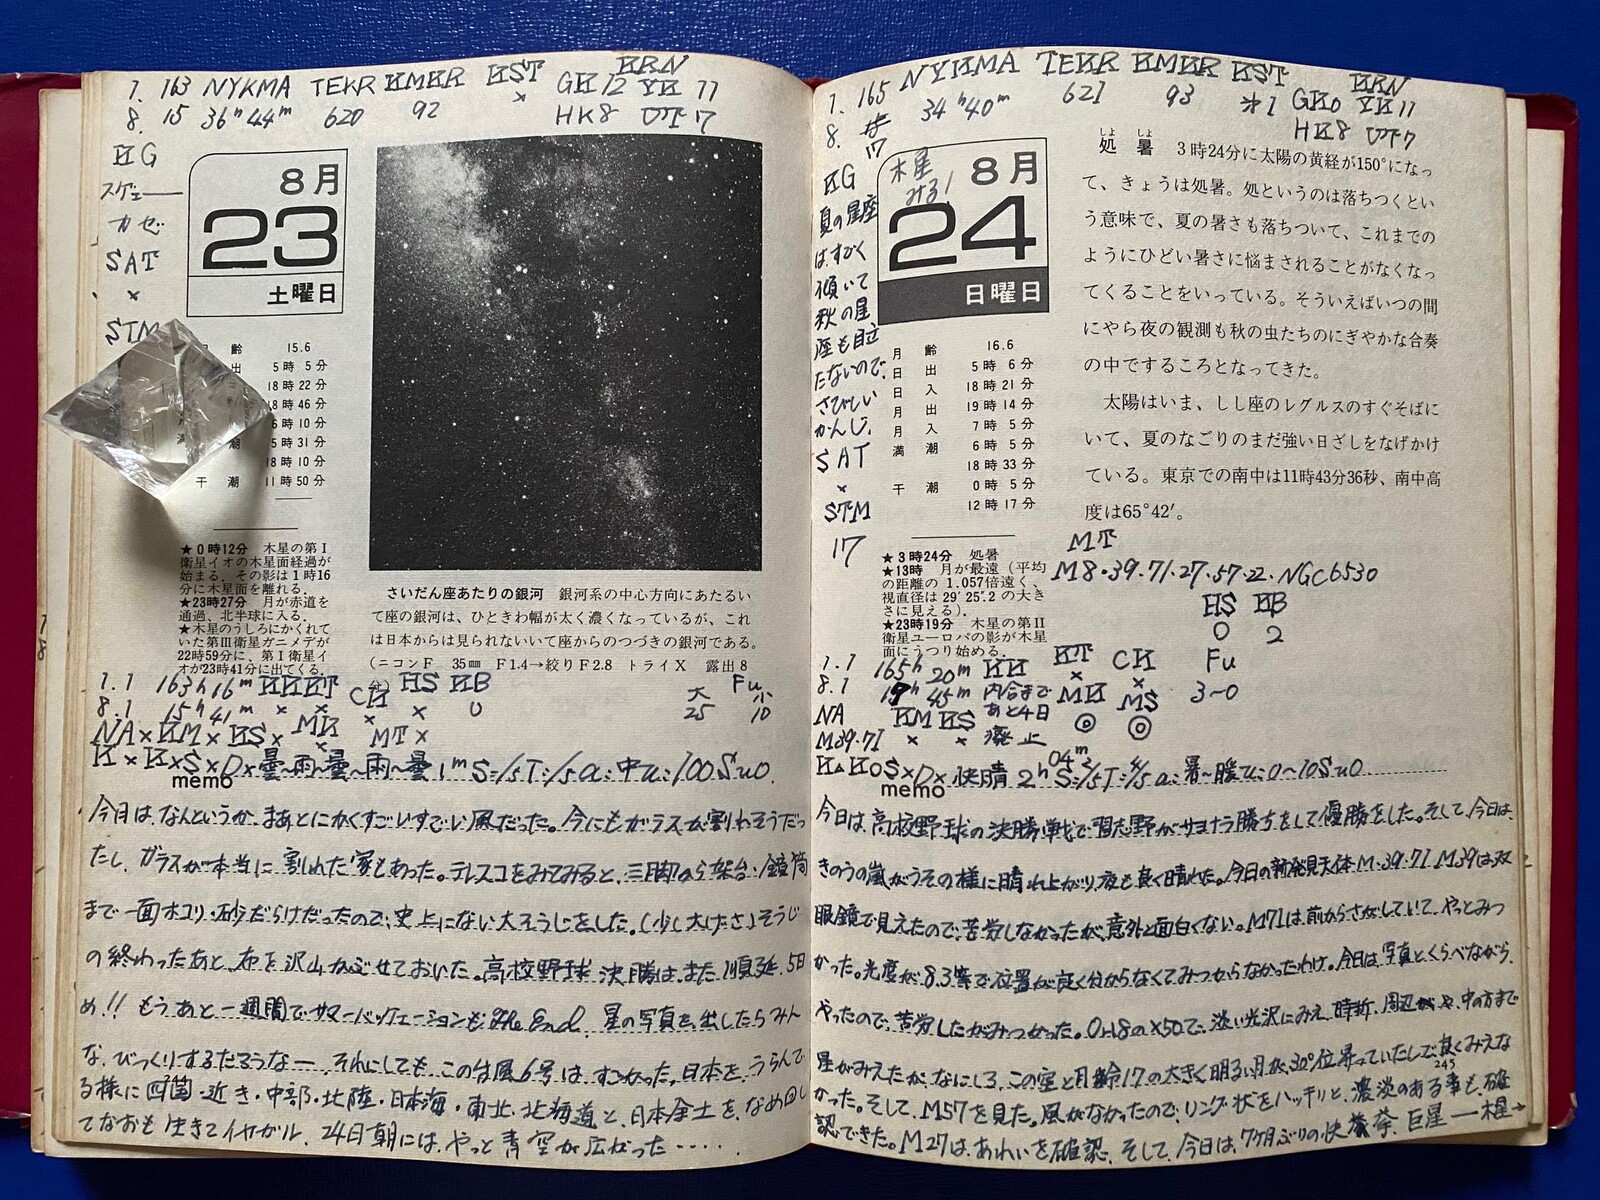 7. 163 NYKMA TEKR KMKR KST GK12 KRN YK 77
8. 15 36h44m 620 92 × HK8 UT7
KG
スゲェー
カゼ
SAT
×
STM
8月
23
土曜日
齢 15.6
出 5時5分
18時22分
18時46分
6時10分
潮 5時31分
18時10分
干潮 11時50分
★0時12分 木星の第Ⅰ
衛星イオの木星面経過が
始まる．その影は1時16
分に木星面を離れる．
★23時27分 月が赤道を
通過、北半球に入る．
★木星のうしろにかくれて
いた第Ⅲ衛星ガニメデが
22時59分に、第Ⅰ衛星イ
オが23時41分に出てくる．
さいだん座あたりの銀河 銀河系の中心方向にあたるい
て座の銀河は、ひときわ幅が太く濃くなっているが、これ
は日本からは見られないいて座からのつづきの銀河である。
(ニコンF 35㎜ F1.4→絞りF2.8 トライX 露出8
分)
7.1 163h16m KK KT CK HS KB 大 Fu 小
8.1 15h41m × × × × 0 25 10
NA× KM× KS× MK× MT×
K× K×S×D×曇〜雨〜曇〜雨〜曇 1m S=1/5 T=1/5 a:中 u:100 Su0
memo
今日は、なんというか、まあとにかくすごいすごい風だった。今にもガラスが割れそうだっ
たし、ガラスが本当に割れた家もあった。テレスコをみてみると、三脚から架台・鏡筒
まで一面ホコリ・砂だらけだったので、史上にない大そうじをした。(少し大げさ)そうじ
の終わったあと、布を沢山かぶせておいた。高校野球決勝は、また順延、5日
め!! もうあと一週間でサマーバケーションもThe End 星の写真を出したらみん
な、びっくりするだろうなー、それにしても、この台風6号はすごかった。日本をうらんで
る様に四国・近き・中部・北陸・日本海・東北・北海道と、日本全土を、なめ回し
てなおも生きてイヤガル、24日朝には、やっと青空が広がった……．
7. 165 NYKMA TEKR KMKR KST GK0 KRN YK11
8. 17 34h40m 621 93 *1 HK8 UT7
KG
夏の星座
はすごく
傾いて
秋の星
座も目立
たないので、
さびしい
かんじ。
SAT
×
STM
17
木星
みる!
8月
24
日曜日
月齢 16.6
日出 5時6分
日入 18時21分
月出 19時14分
月入 7時5分
満潮 6時5分
18時33分
干潮 0時5分
12時17分
★3時24分 処暑
★13時 月が最遠(平均
の距離の1.057倍遠く、
視直径は29′25″.2の大き
さに見える)．
★23時19分 木星の第Ⅱ
衛星ユーロパの影が木星
面にうつり始める．
しょ しょ
処暑 3時24分に太陽の黄経が150°になっ
て、きょうは処暑。処というのは落ちつくとい
う意味で、夏の暑さも落ちついて、これまでの
ようにひどい暑さに悩まされることがなくなっ
てくることをいっている。そういえばいつの間
にやら夜の観測も秋の虫たちのにぎやかな合奏
の中でするころとなってきた。
太陽はいま、しし座のレグルスのすぐそばに
いて、夏のなごりのまだ強い日ざしをなげかけ
ている。東京での南中は11時43分36秒、南中高
度は65°42′。
MT
M8・39・71・27・57・22・NGC6530
HS KB
0 2
7.1 165h20m KK KT CK Fu
8.1 17h45m 内合まで × × 3〜0
あと4日
NA KM KS 廃止 MK MS
M39.71 × × ◎ ◎
K▲K0S×D×快晴 2h04m S=1/5 T=4/5 a:暑〜暖 u:0〜10 Su0
memo
今日は、高校野球の決勝戦で習志野がサヨナラ勝ちをして優勝をした。そして、今日は、
きのうの嵐がうその様に晴れ上がり、夜も良く晴れた。今日の新発見天体M・39・71 M39は双
眼鏡で見えたので、苦労しなかったが、意外と面白くない。M71は前からさがしていて、やっとみつ
かった。光度が8.3等で位置が良く分からなくてみつからなかったわけ。今日は写真とくらべながら、
やったので、苦労したがみつかった。Or18の×50で、淡い光沢にみえ、時折、周辺や、中の方まで
星がみえたが、なにしろ、この空と月齢17の大きく明るい月が、30°位昇っていたしで、良くみえな
かった。そして、M57を見た。風がなかったので、リング状をハッキリと、濃淡のある事も、確
245
認できた。M27は、あわいを確認、そして、今日は、7ケ月ぶりの快挙、巨星――木星→